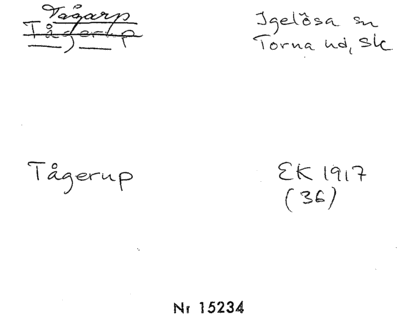 Tågarp
Tågerup
Igelösa sn
Torna hd, Sk
Tågerup
EK 1917
(36)
Nr 15234